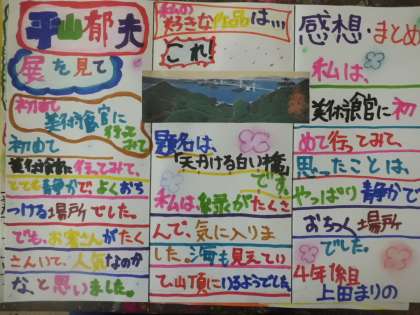 平山郁夫
展を見て
初めて
美術館に
行って
みて
初めて
美術館に行ってみて、
とても静かで、よくおち
つける場所でした。
でも、お客さんがたく
さんいて、人気なのか
な、と思いました。
私の
好きな作品は…
これ!
題名は、
「天かける白い橋」
です。
私は、緑がたくさ
んで、気に入りま
した。海も見えてい
て、山頂にいるようでした。
感想・まとめ
私は、
美術館に初
めて行ってみて、
思ったことは、
やっぱり静かで
おちつく場所
でした。
4年1組
上田まりの